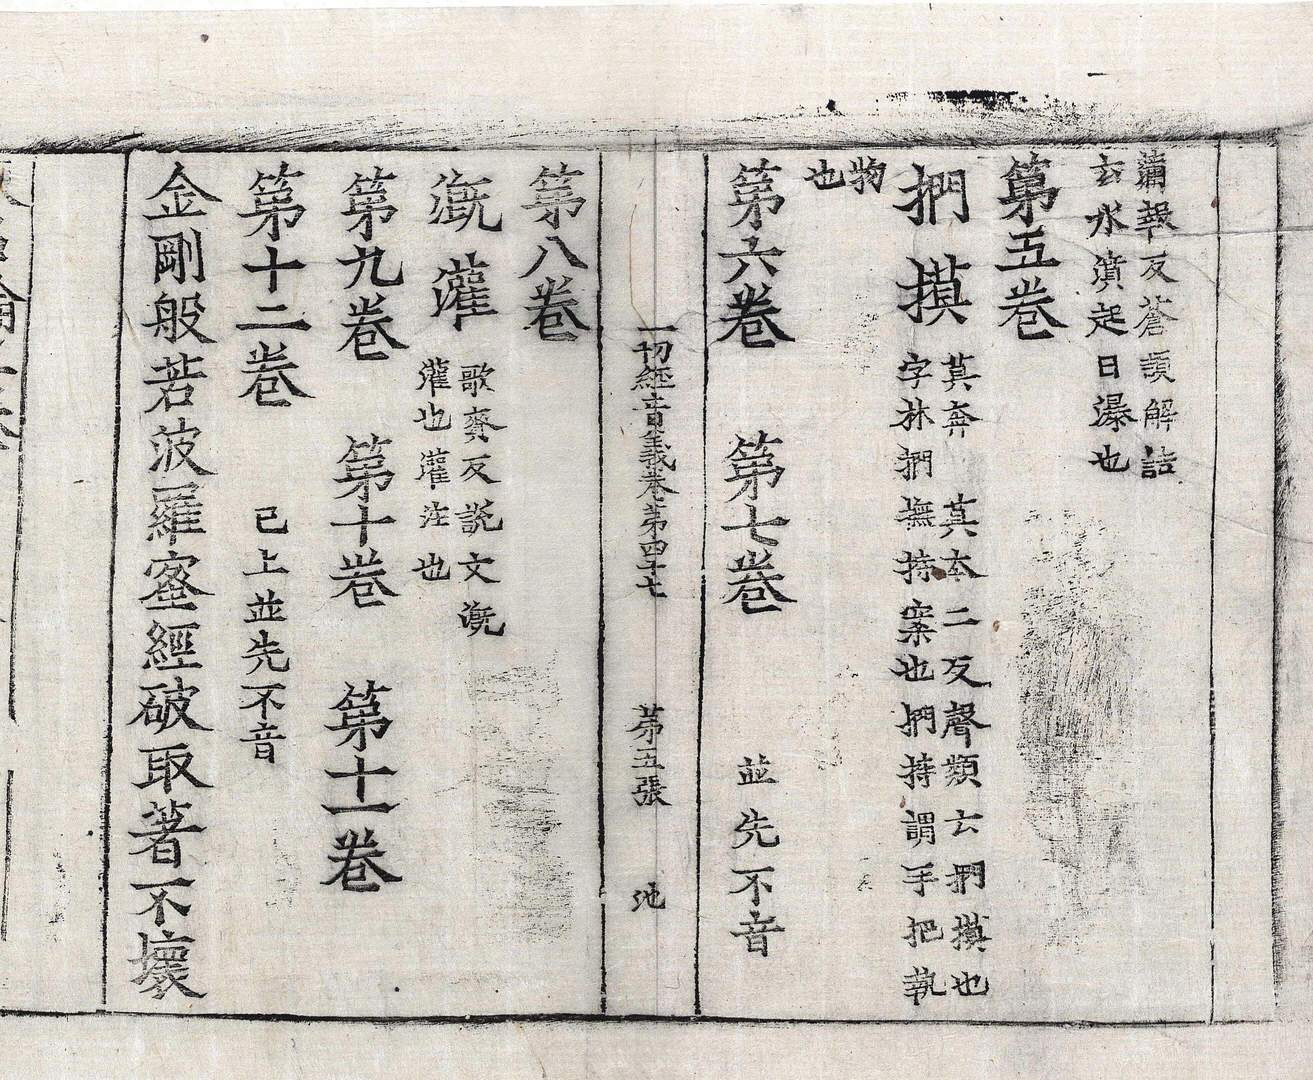 蒲報反蒼頡解詁
云水濆起日瀑也
第五卷
捫摸
莫奔 莫本二反聲類云捫摸也
字林捫撫持案也捫持謂手把執
物
也
第六卷 第七卷 並先不音
一切經音義卷第四十七 第五張 池
第八卷
溉灌
歌賚反説文溉
灌也灌注也
第九卷 第十卷 第十一卷
第十二卷 已上並先不音
金剛般若波羅蜜經破取著不壞